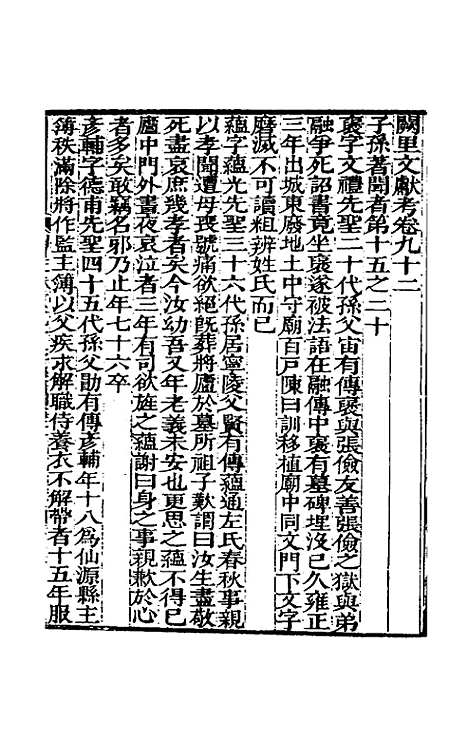 闕里文獻考卷九十二
子孫著聞者第十五之二十
裦字文禮先聖二十代孫父宙有傳裦與張儉友善張儉之獄與弟
融爭死詔書竟坐裦遂被法語在融傳中裦有墓碑埋沒已久雍正
三年出城東廢地土中守廟百戶陳曰訓移植廟中同文門下文字
磨滅不可讀粗辨姓氏而已
蘊字蘊光先聖三十六代孫居寧陵父賢有傳蘊通左氏春秋事親
以孝聞遭母喪號痛欲絕旣葬將廬於墓所祖子歎謂曰汝生盡敬
死盡哀庶幾孝者矣今汝幼吾又年老義未安也更思之蘊不得已
廬中門外晝夜哀泣者三年有司欲旌之蘊謝曰身之事親歉於心
者多矣敢竊名邪乃止年七十六卒
彥輔字德甫先聖四十五代孫父勖有傳彥輔年十八爲仙源縣主
簿秩滿除將作監主簿以父疾求解職侍養衣不解帶者十五年服